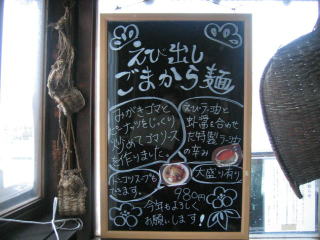 えび出し
ごまから麺
みがきゴマと
ピーナッツをじっくり
炒めてゴマソース
を作りました。
えびラー油と
虾醤を合わせ
た特製ラー油
の辛み
トンコツスープも
できます。
大盛り有り
980円
今年もよろしく
お願いします!